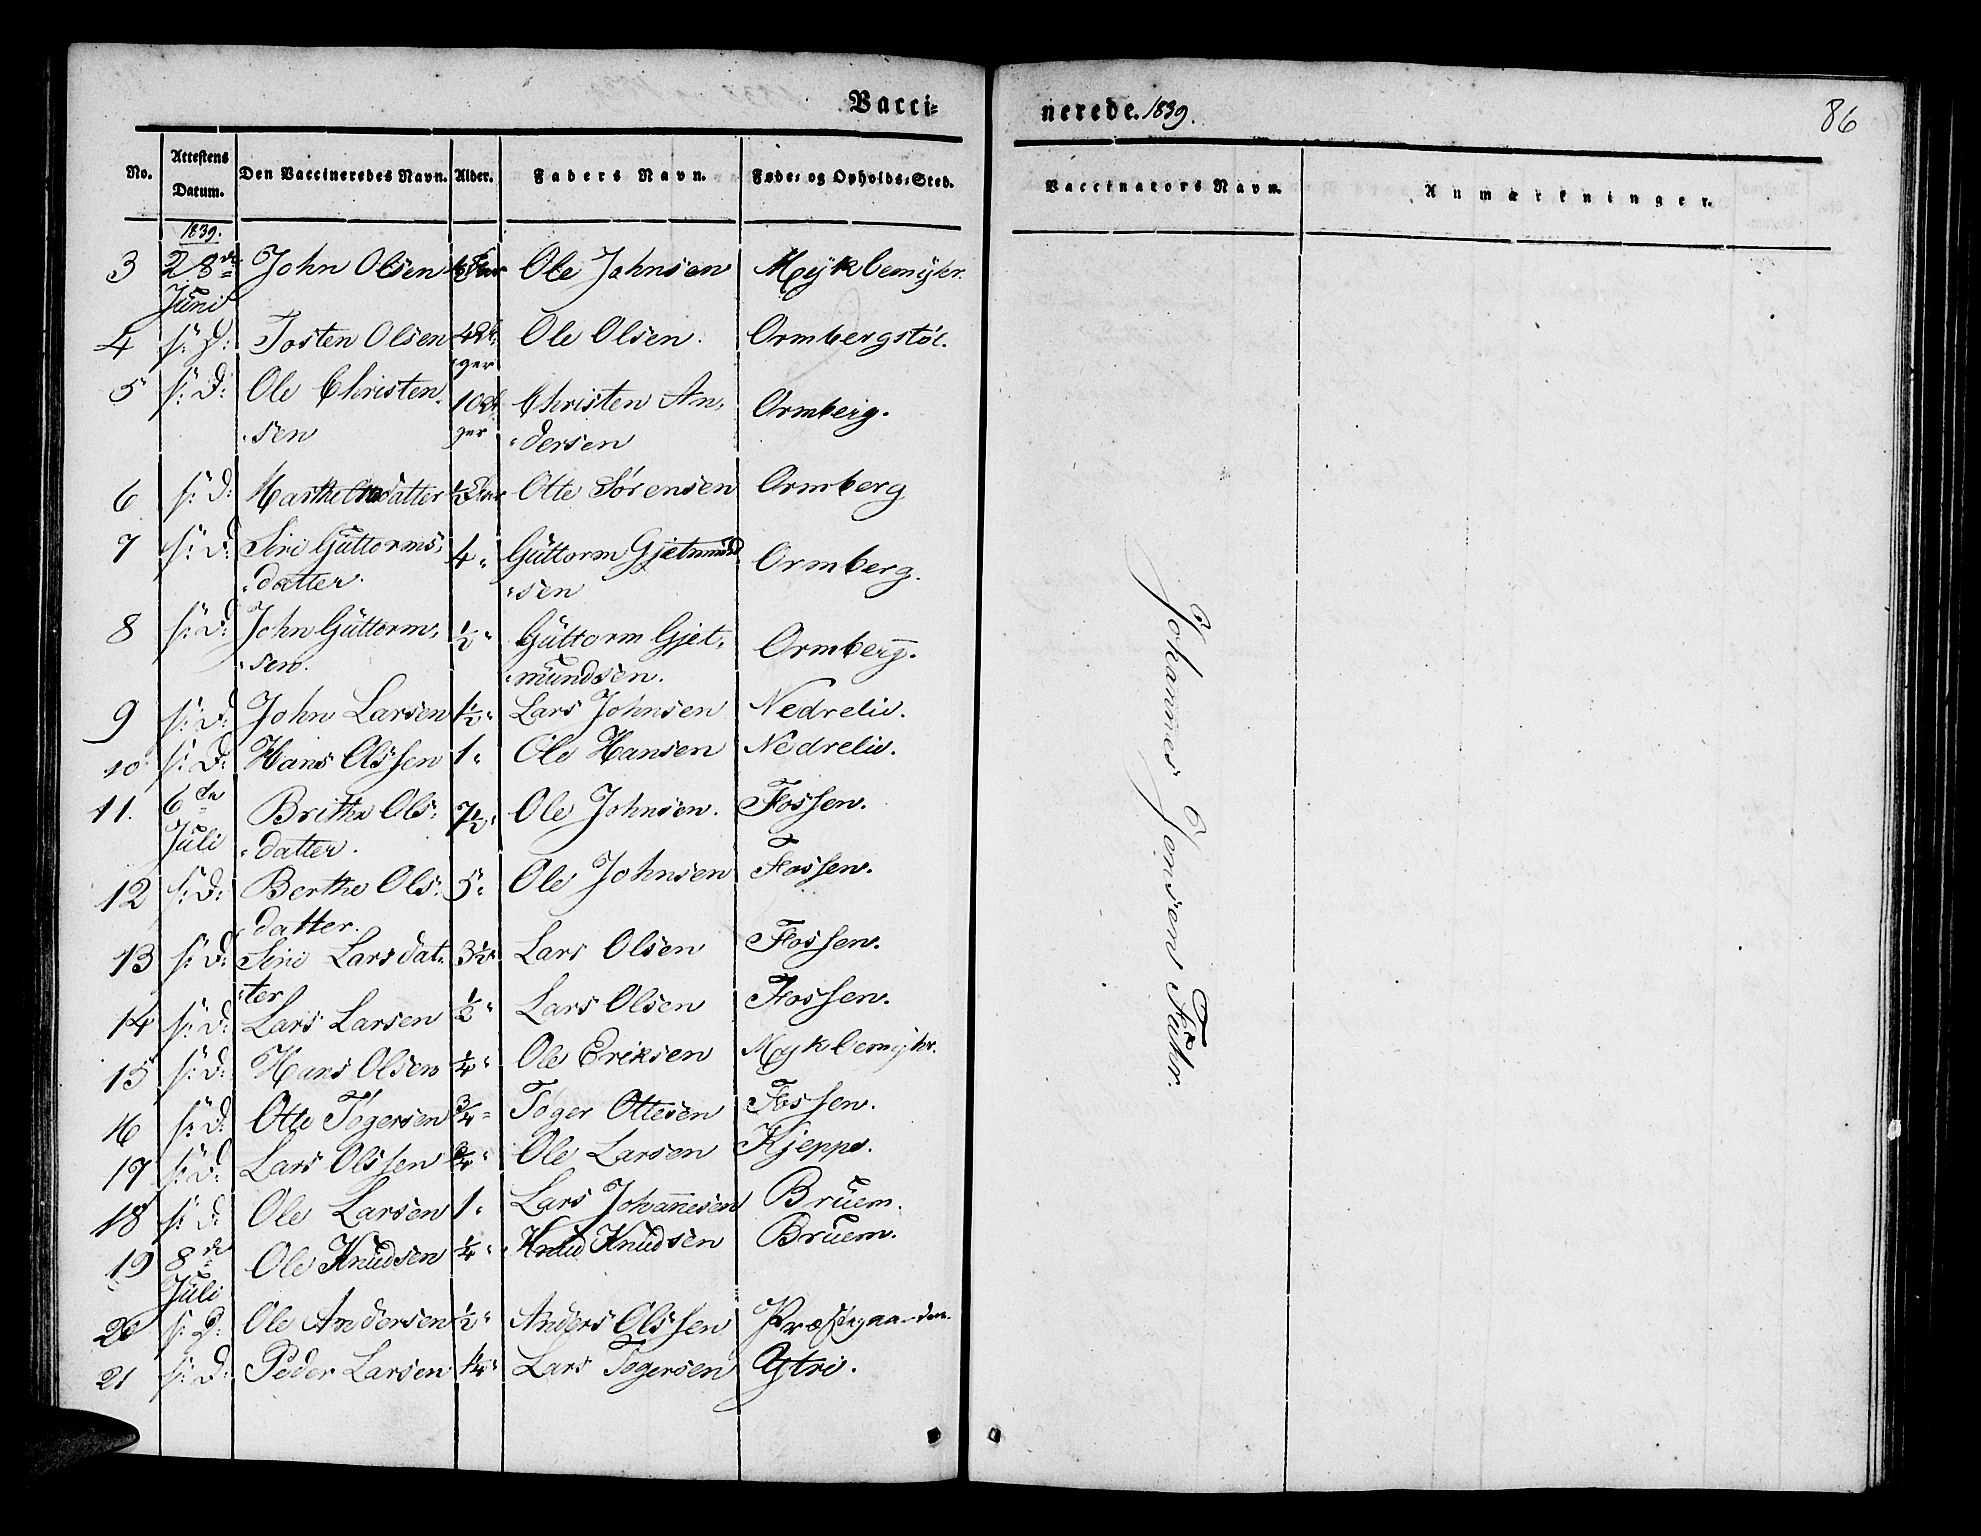 Vacci-
nerede. 1839.
86
No.
Attestens Datum.
Den Vaccineredes Navn.
Alder.
Faders Navn.
Føde- og Opholds-Sted.
Vaccinators Navn.
Anmærkninger.
1839.
3 28de John Olsen Ole Johnsen Myklemyhr.
Juni
4 s: D: Josten Olsen 4 Ole Olsen. Ormbergstøl.
ger
5 s: D: Ole Christen- 10 Christen An- Ormberg.
sen ger dersen
6 s: D: Marthe datter ½ Otte Sørensen Ormberg
7 s: D: Siri Guttorms- 4 " Guttorm Gjetmund Ormberg.
datter. sen
8 s: D: John Guttorm- ½ " Guttorm Gjet- Ormberg.
sen. mundsen.
9 s: D: John Larsen ½ " Lars Johnsen Nedrelid.
10 s: D: Hans Olssen 1 " Ole Hansen Nedrelid.
11. 6de Brithe Ols- 7½ " Ole Johnsen. Fossen.
Juli datter.
12 s: D: Berthe Ols- 5 " Ole Johnsen Fossen.
datter.
13 s: D: Siri Larsdat- 3½ Lars Olsen Fossen.
ter
14 s: D: Lars Larsen ½ " Lars Olsen Fossen.
15 s: D: Hans Olsen ¼ " Ole Eriksen Myklemyhr.
16 s: D: Otte Togersen ¾ " Toger Ottesen Fossen.
17 s: D: Lars Olssen Ole Larsen Kjepps.
18 s: D: Ole Larsen 1 " Lars Johannesen Bruem.
19 8de Ole Knudsen ¼ " Knud Knudsen Bruem.
Juli
20 s: D: Ole Andersen ½ " Anders Olssen Præstegaarden.
21 s: D: Peder Larsen ¼ " Lars Togersen Ytri.
Johannes Jensen